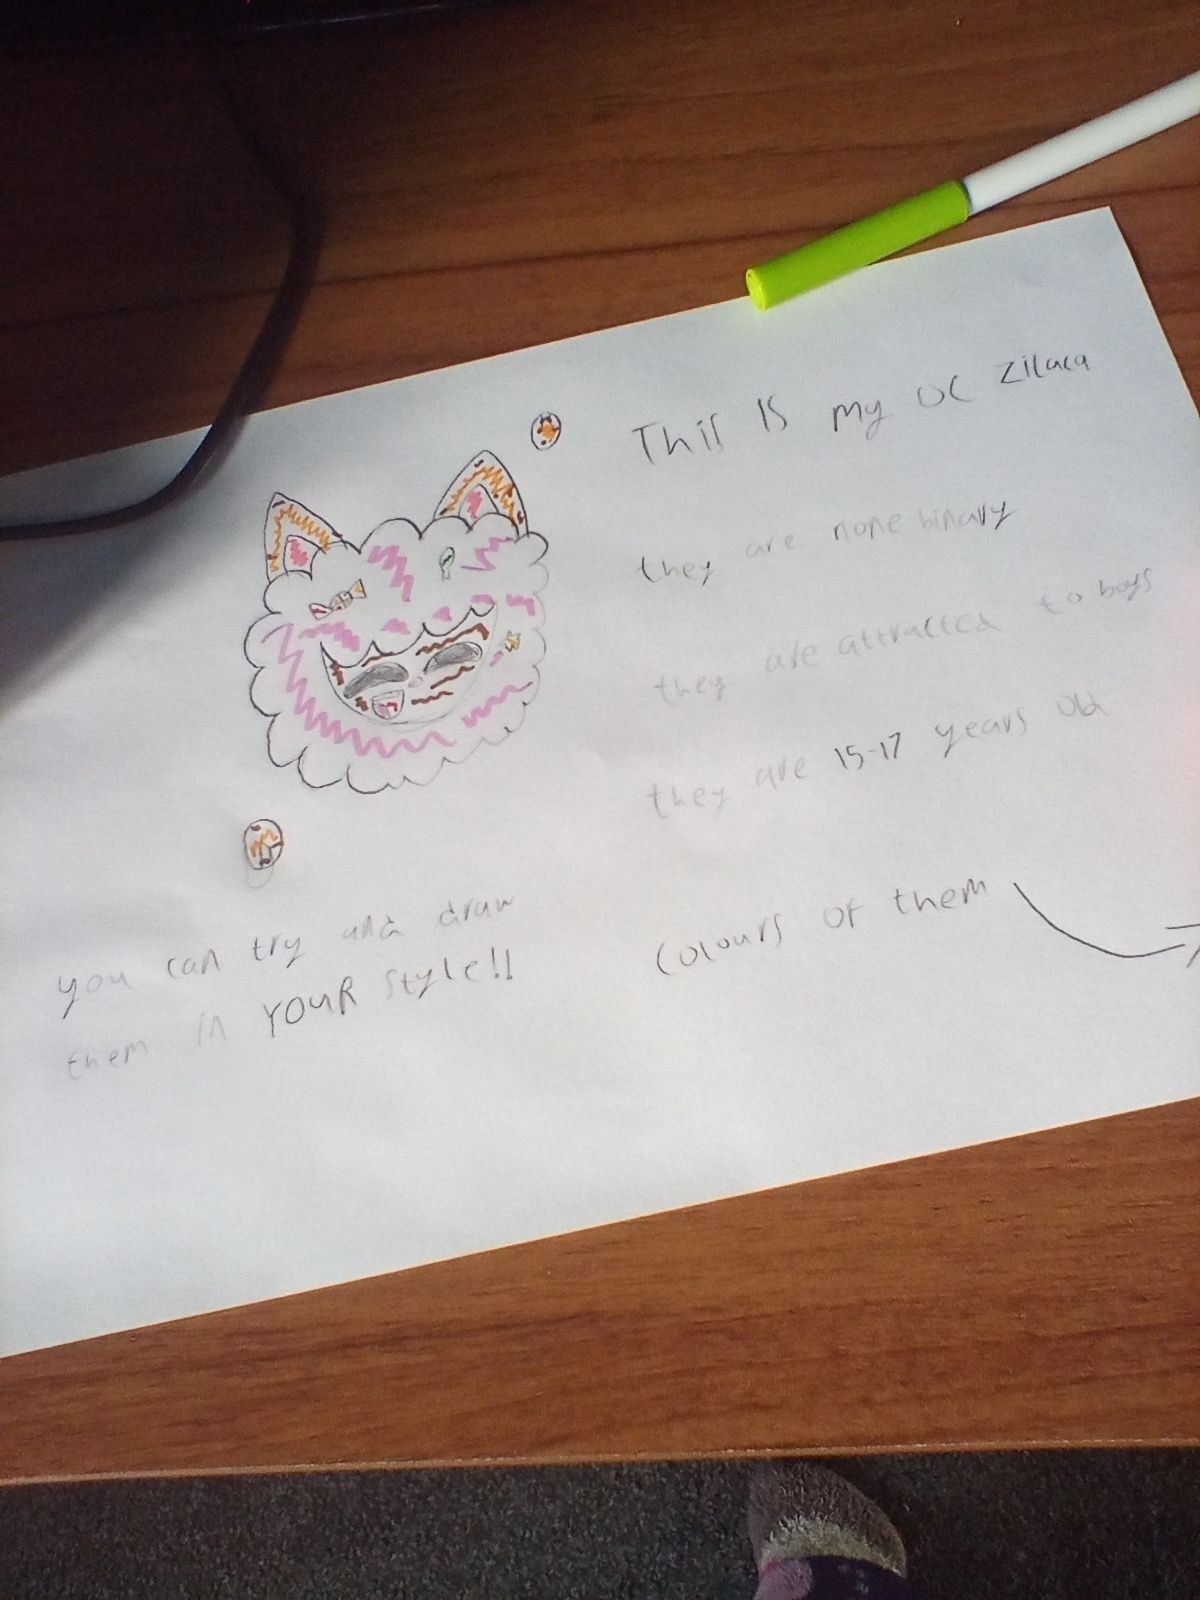 This is my OC Zilaca
they are none binary
they are attracted to boys
they are 15-17 years old
colours of them
you can try and draw
them in YOUR style!!